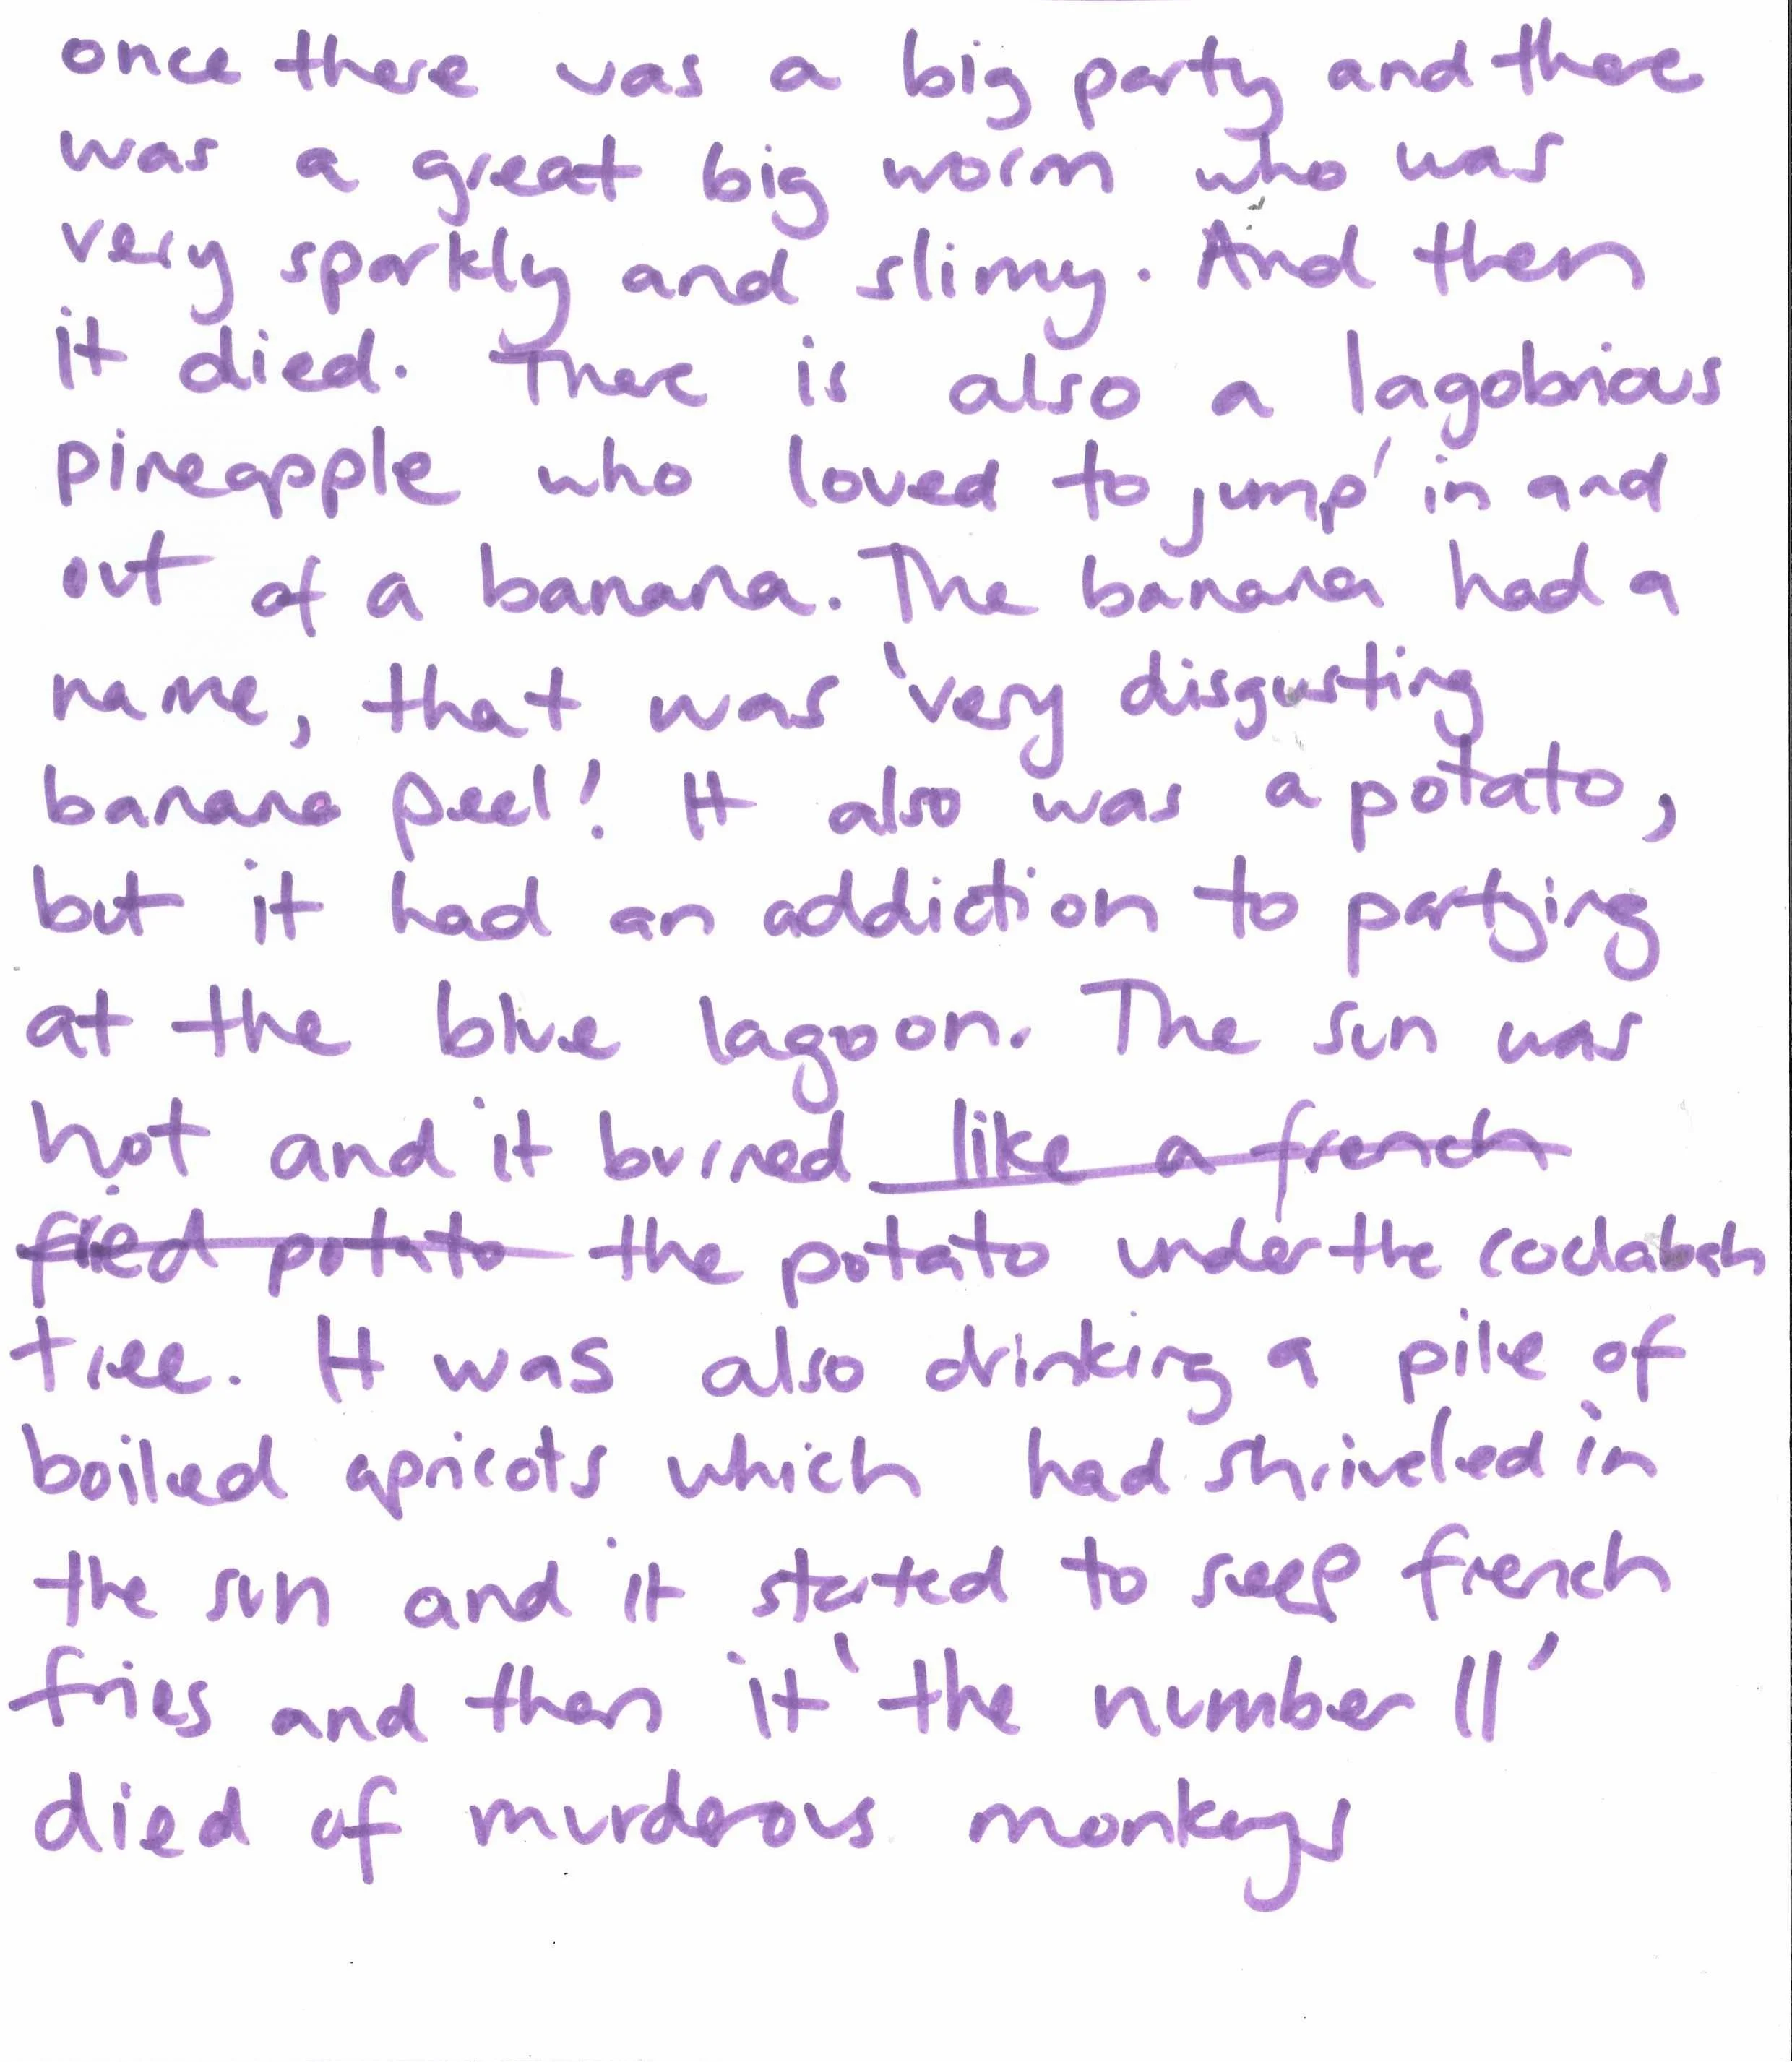 once there was a big party and there
was a great big worm who was
very sparkly and slimy. And then
it died. There is also a lagobrious
pineapple who loved to 'jump' in and
out of a banana. The banana had a
name, that was 'very disgusting
banana peel! It also was a potato,
but it had an addiction to partying
at the blue lagoon. The sun was
hot and it burned ~~like a french~~
~~fried potato~~ the potato under the coolabah
tree. It was also drinking a pile of
boiled apricots which had shriveled in
the sun and it started to seep french
fries and then it 'the number 11'
died of murderous monkeys